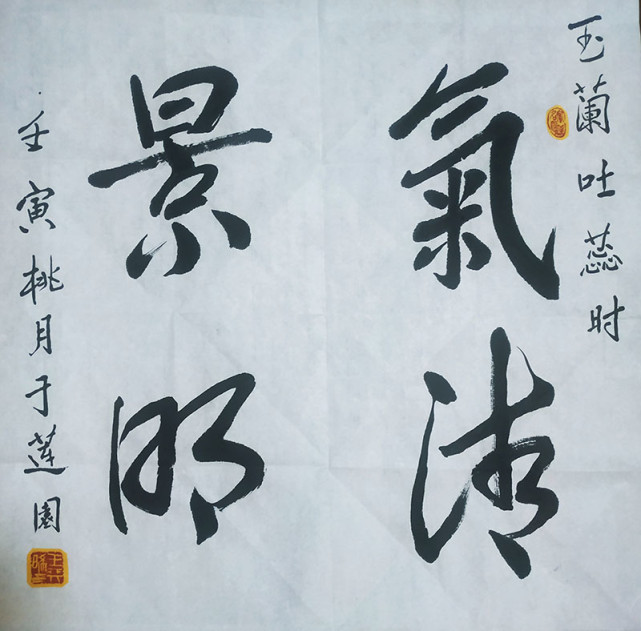 玉蘭吐蕊时
氣清
景明
壬寅桃月于莲園